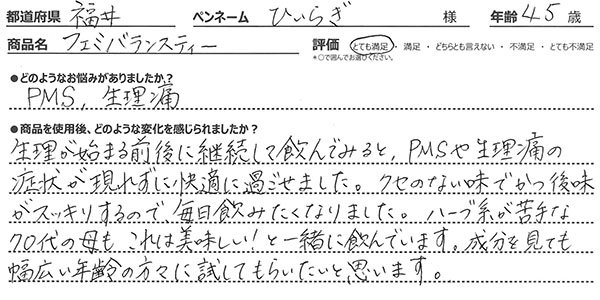 都道府県 福井 ペンネーム ひいらぎ 様 年齢 45 歳
商品名 フェミバランスティー 評価 とても満足 ・ 満足 ・ どちらとも言えない ・ 不満足 ・ とても不満足
*○で囲んでお選びください。
●どのようなお悩みがありましたか?
PMS、生理痛
●商品を使用後、どのような変化を感じられましたか?
生理が始まる前後に継続して飲んでみると、PMSや生理痛の
症状が現れずに快適に過ごせました。クセのない味でかつ後味
がスッキリするので、毎日飲みたくなりました。ハーブ系が苦手な
70代の母も これは美味しい!と一緒に飲んでいます。成分を見ても
幅広い年齢の方々に試してもらいたいと思います。